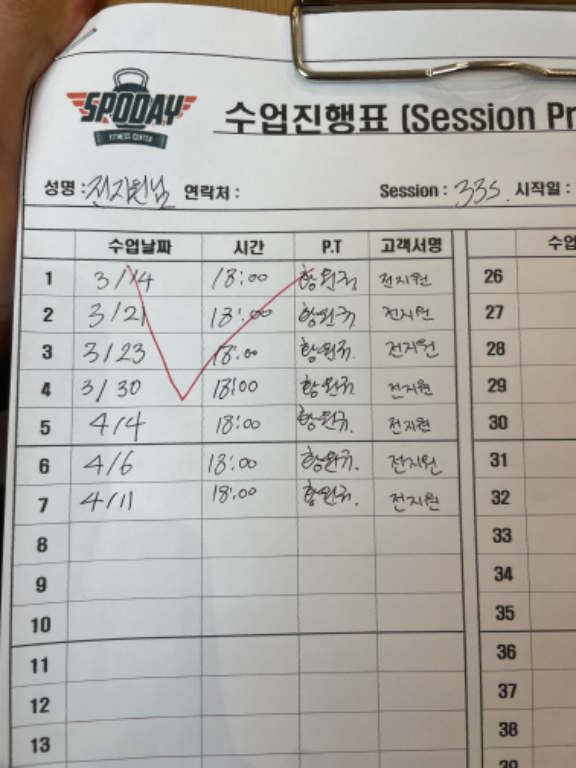 SPODAY
FITNESS CENTER
수업진행표 (Session Pr
성명 : 전지원님 연락처 : Session : 33S. 시작일 :
수업날짜 시간 P.T 고객서명 수업
1 3/14 18:00 황완규 전지원 26
2 3/21 18:00 황완규 전지원 27
3 3/23 18:00 황완규. 전지원 28
4 3/30 18:00 황완규 전지원 29
5 4/4 18:00 황완규. 전지원 30
6 4/6 18:00 황완규. 전지원 31
7 4/11 18:00 황완규. 전지원 32
8 33
9 34
10 35
11 36
12 37
13 38
39